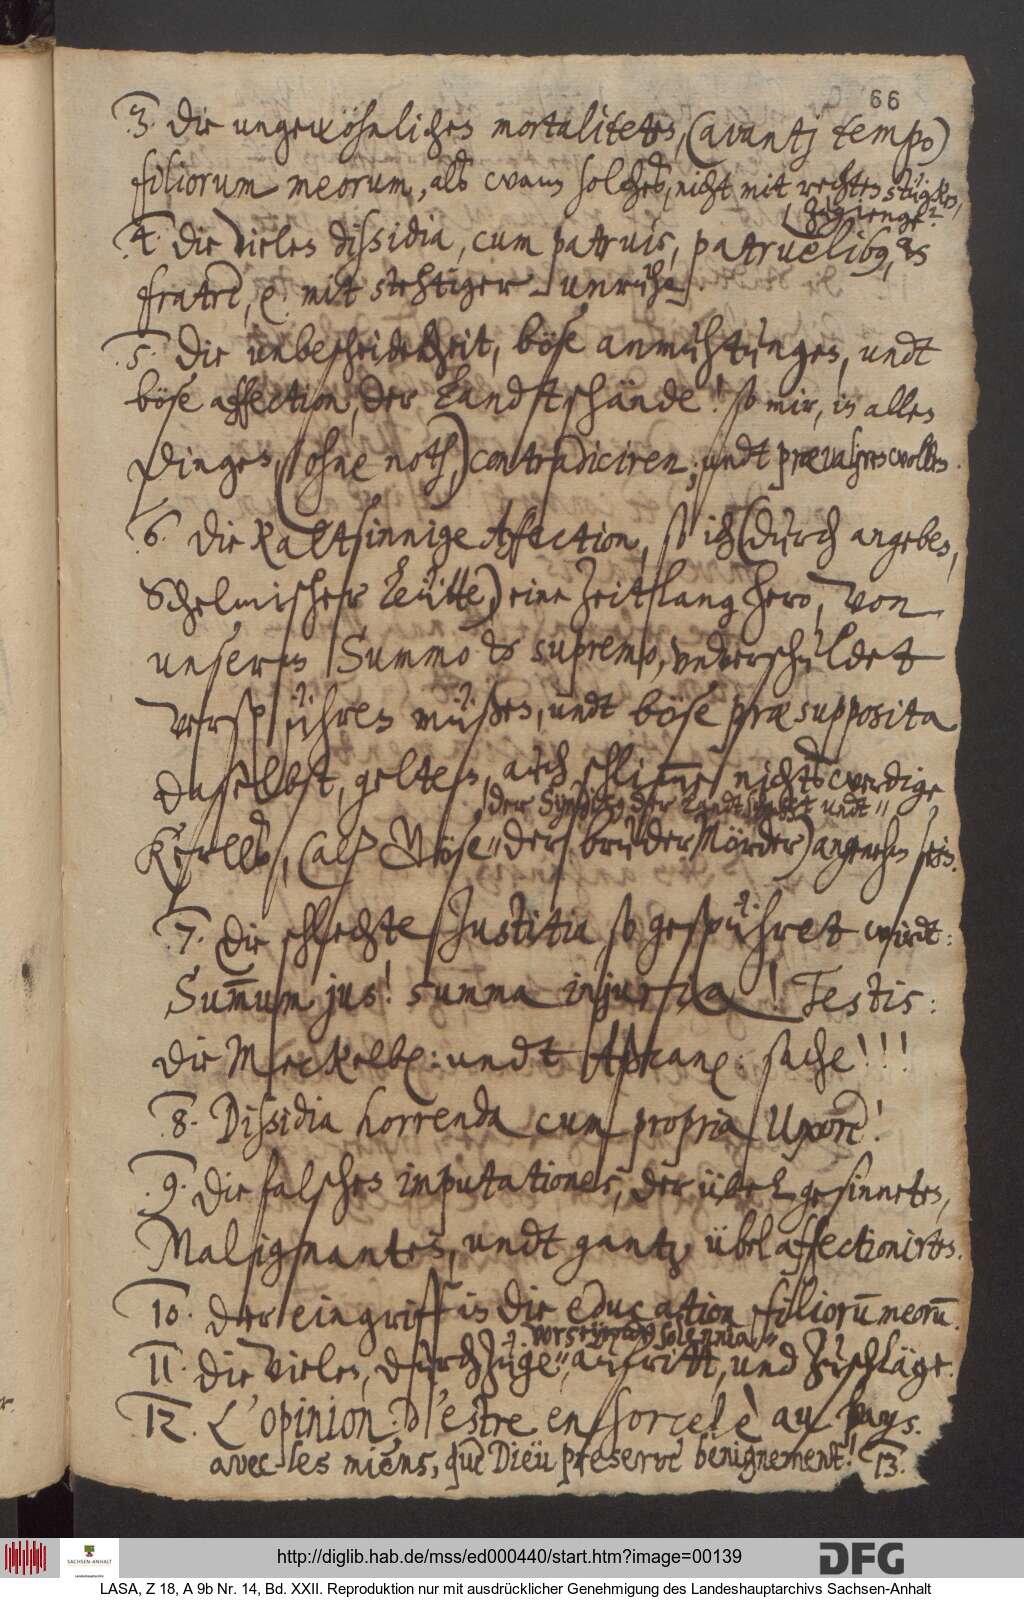 66
3. Die ungewöhnlichen mortalitetes, (avanti tempo)
filiorum meorum, als wann solches, nicht mit rechten stügken,
zugienge?
4. Die vielen dissidia, cum patruis, patruelibus, et
fratre, & mit stehtiger unruhe.
5. Die unbescheidenheit, böse anmuhtungen, undt
böse affection, der Landtschände! so mir, in allen
Dingen, (ohne noth,) contradiciren, undt prævaliren wollen.
6. Die Kaltsinnige Affection, so ich (durch angeben,
Schelmischer Leütte) eine zeitlang hero, von
unserm Summo et supremo, unverschuldet
verspühren müßen, undt böse præsupposita
daselbst, gelten, auch schlimme nichtswerdige
der Syndicus der Landtschafft undt"
Kerlls, (alß Röse" der bruder Mörder) angenehm sein.
7. Die schlechte Justitia so gespühret wirdt:
Summum jus! summa injuria! Testis:
die Merckelb: undt Ascan: sache!!!
8. Dissidia horrenda cum propria Uxore!
9. Die falschen imputationes, der übel gesinneten,
Malignanten, undt gantz übel affectionirten.
10. der eingriff in die education filiorum meorum.
vorseyende solennia"
11. die vielen, durchzüge", aufritt, und Zuschläge.
12. L'opinion, d'estre ensorcelè au pays.
avec les miens, que Dieu preserve benignement! 13.
http://diglib.hab.de/mss/ed000440/start.htm?image=00139
DFG
SACHSEN-ANHALT
LASA, Z 18, A 9b Nr. 14, Bd. XXII. Reproduktion nur mit ausdrücklicher Genehmigung des Landeshauptarchivs Sachsen-Anhalt